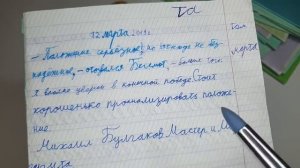 Та
12 марта 2019г.
там
— Положение серьёзное, но отнюдь не без-
марта
надёжное, — отозвался Бегемот, — больше того:
я вполне уверен в конечной победе. Стоит
хорошенько проанализировать положе-
ние.
Михаил Булгаков Мастер и Ма